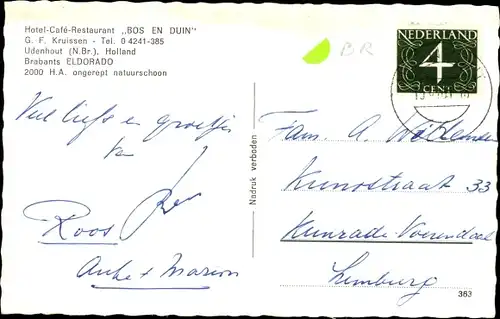 Hotel-Café-Restaurant „BOS EN DUIN"
G.-F. Kruissen - Tel. 0 4241-385
Udenhout (N.Br.), Holland
Brabants ELDORADO
2000 H.A. ongerept natuurschoon
BR
NEDERLAND
4
CENT
Veel liefs en groetjes
Roos
Anke + Marion
Nadruk verboden
Fam. A.
Kunostraat 33
Kunrade-Voerendaal
Limburg
383